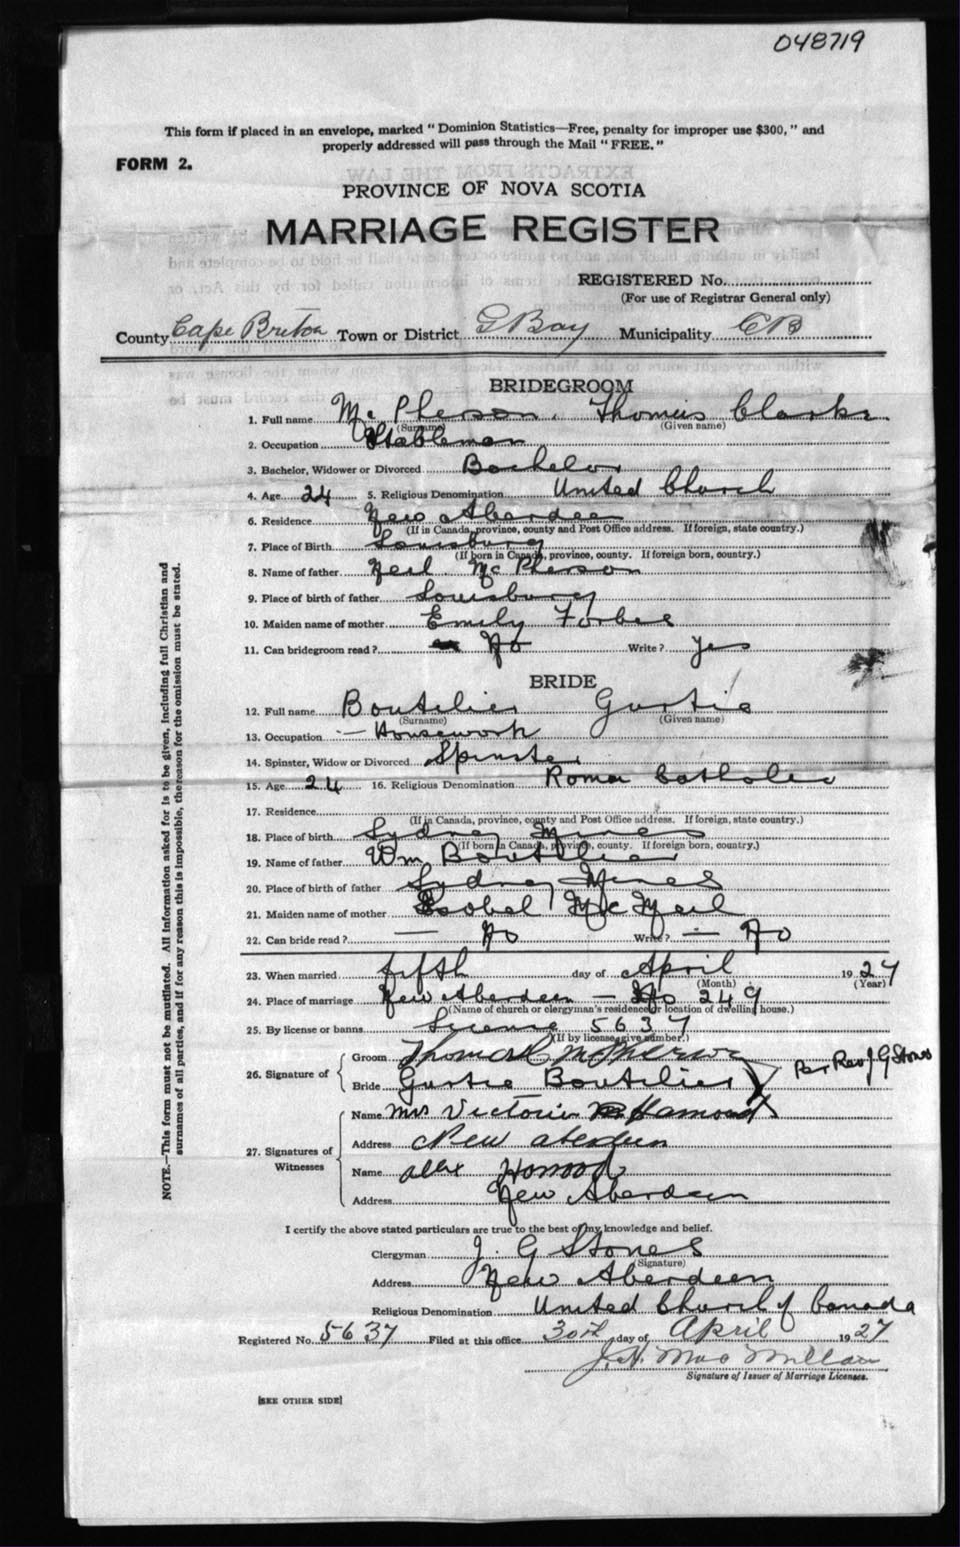 048719
This form if placed in an envelope, marked "Dominion Statistics—Free, penalty for improper use $300," and
properly addressed will pass through the Mail "FREE."
FORM 2.
EXTRACTS FROM THE LAW
PROVINCE OF NOVA SCOTIA
MARRIAGE REGISTER
REGISTERED No.
(For use of Registrar General only)
County Cape Breton Town or District G Bay Municipality CB
BRIDEGROOM
1. Full name Mc Pherson. Thomas Clarke
(Surname) (Given name)
2. Occupation Stableman
3. Bachelor, Widower or Divorced Bachelor
4. Age 24 5. Religious Denomination United Church
6. Residence New Aberdeen
(If in Canada, province, county and Post Office address. If foreign, state country.)
7. Place of Birth Louisburg
(If born in Canada, province, county. If foreign born, country.)
8. Name of father Neil Mc Pherson
9. Place of birth of father Louisburg
10. Maiden name of mother Emily Forbes
11. Can bridegroom read? No Write? Yes
BRIDE
12. Full name Boutilier Gustie
(Surname) (Given name)
13. Occupation — Housework
14. Spinster, Widow or Divorced Spinster
15. Age 24 16. Religious Denomination Roman Catholic
17. Residence
(If in Canada, province, county and Post Office address. If foreign, state country.)
18. Place of birth Sydney Mines
(If born in Canada, province, county. If foreign born, country.)
19. Name of father Wm Boutilier
20. Place of birth of father Sydney Mines
21. Maiden name of mother Isobel McNeil
22. Can bride read? — No Write? — No
23. When married fifth day of April 1927
(Month) (Year)
24. Place of marriage New Aberdeen — No 249
(Name of church or clergyman's residence or location of dwelling house.)
25. By license or banns License 5637
(If by license, give number.)
26. Signature of
Groom Thomas C McPherson
Bride Gustie Boutilier
Per Rev J G Stones
27. Signatures of Witnesses
Name Mrs Victoria
Address New Aberdeen
Name Alex
Address New Aberdeen
I certify the above stated particulars are true to the best of my knowledge and belief.
Clergyman J. G Stones
(Signature)
Address New Aberdeen
Religious Denomination United Church of Canada
Registered No. 5637 Filed at this office 30th day of April 1927
J.H. MacMillan
Signature of Issuer of Marriage Licenses.
[SEE OTHER SIDE]
NOTE.—This form must not be mutilated. All information asked for is to be given, including full Christian and
surnames of all parties, and if for any reason this is impossible, the reason for the omission must be stated.